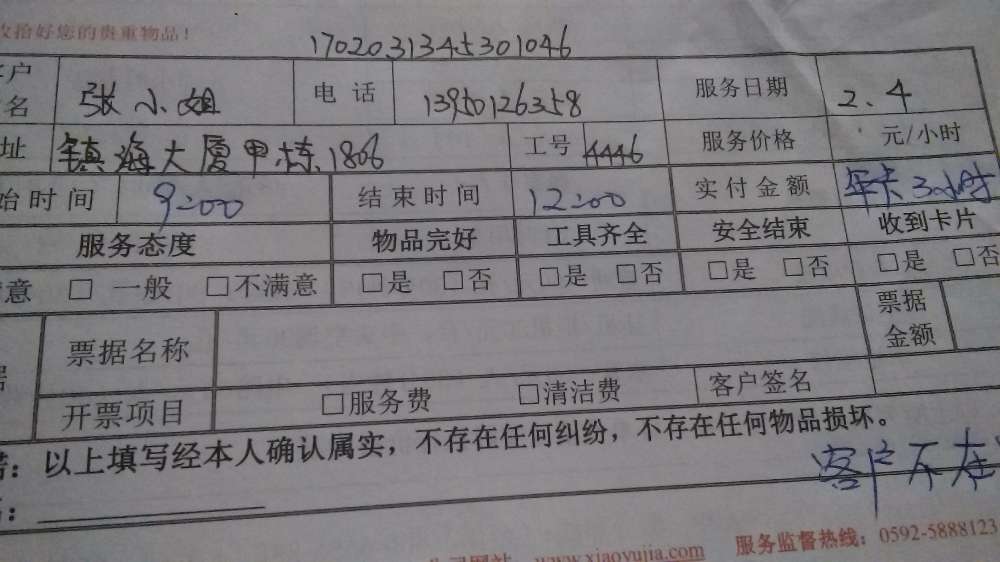 收拾好您的贵重物品！
1702031345301046
客户 张小姐 电话 13950126358 服务日期 2、4
名
址 镇海大厦甲栋1806 工号 4446 服务价格 元/小时
始时间 9:00 结束时间 12:00 实付金额 年卡3小时
服务态度 物品完好 工具齐全 安全结束 收到卡片
满意 □ 一般 □不满意 □是 □否 □是 □否 □是 □否 □是 □否
票据名称 票据
金额
开票项目 □服务费 □清洁费 客户签名
以上填写经本人确认属实，不存在任何纠纷，不存在任何物品损坏。
客户不在
www.xiaoyujia.com 服务监督热线：0592-5888123